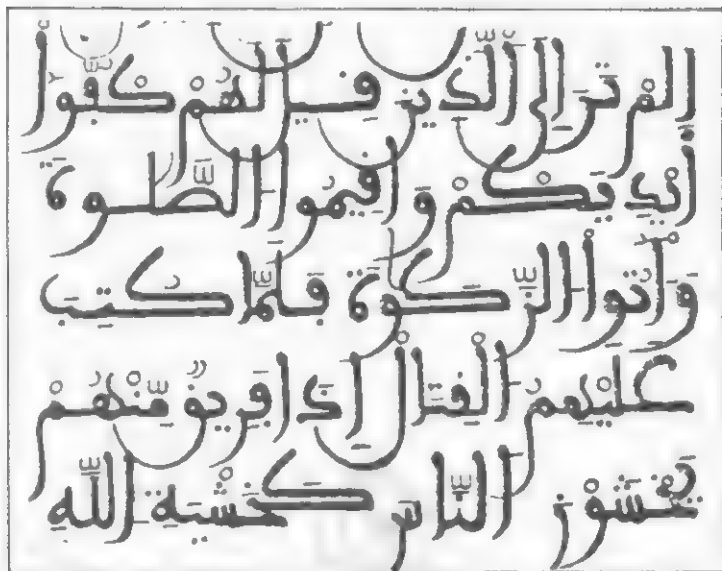 اَلَمْ تَرَ إِلَى الَّذِينَ قِيلَ لَهُمْ كُفُّوا
أَيْدِيَكُمْ وَأَقِيمُوا الصَّلَوٰةَ
وَءَاتُوا الزَّكَوٰةَ فَلَمَّا كُتِبَ
عَلَيْهِمُ الْقِتَالُ إِذَا فَرِيقٌ مِنْهُمْ
يَخْشَوْنَ النَّاسَ كَخَشْيَةِ اللَّهِ